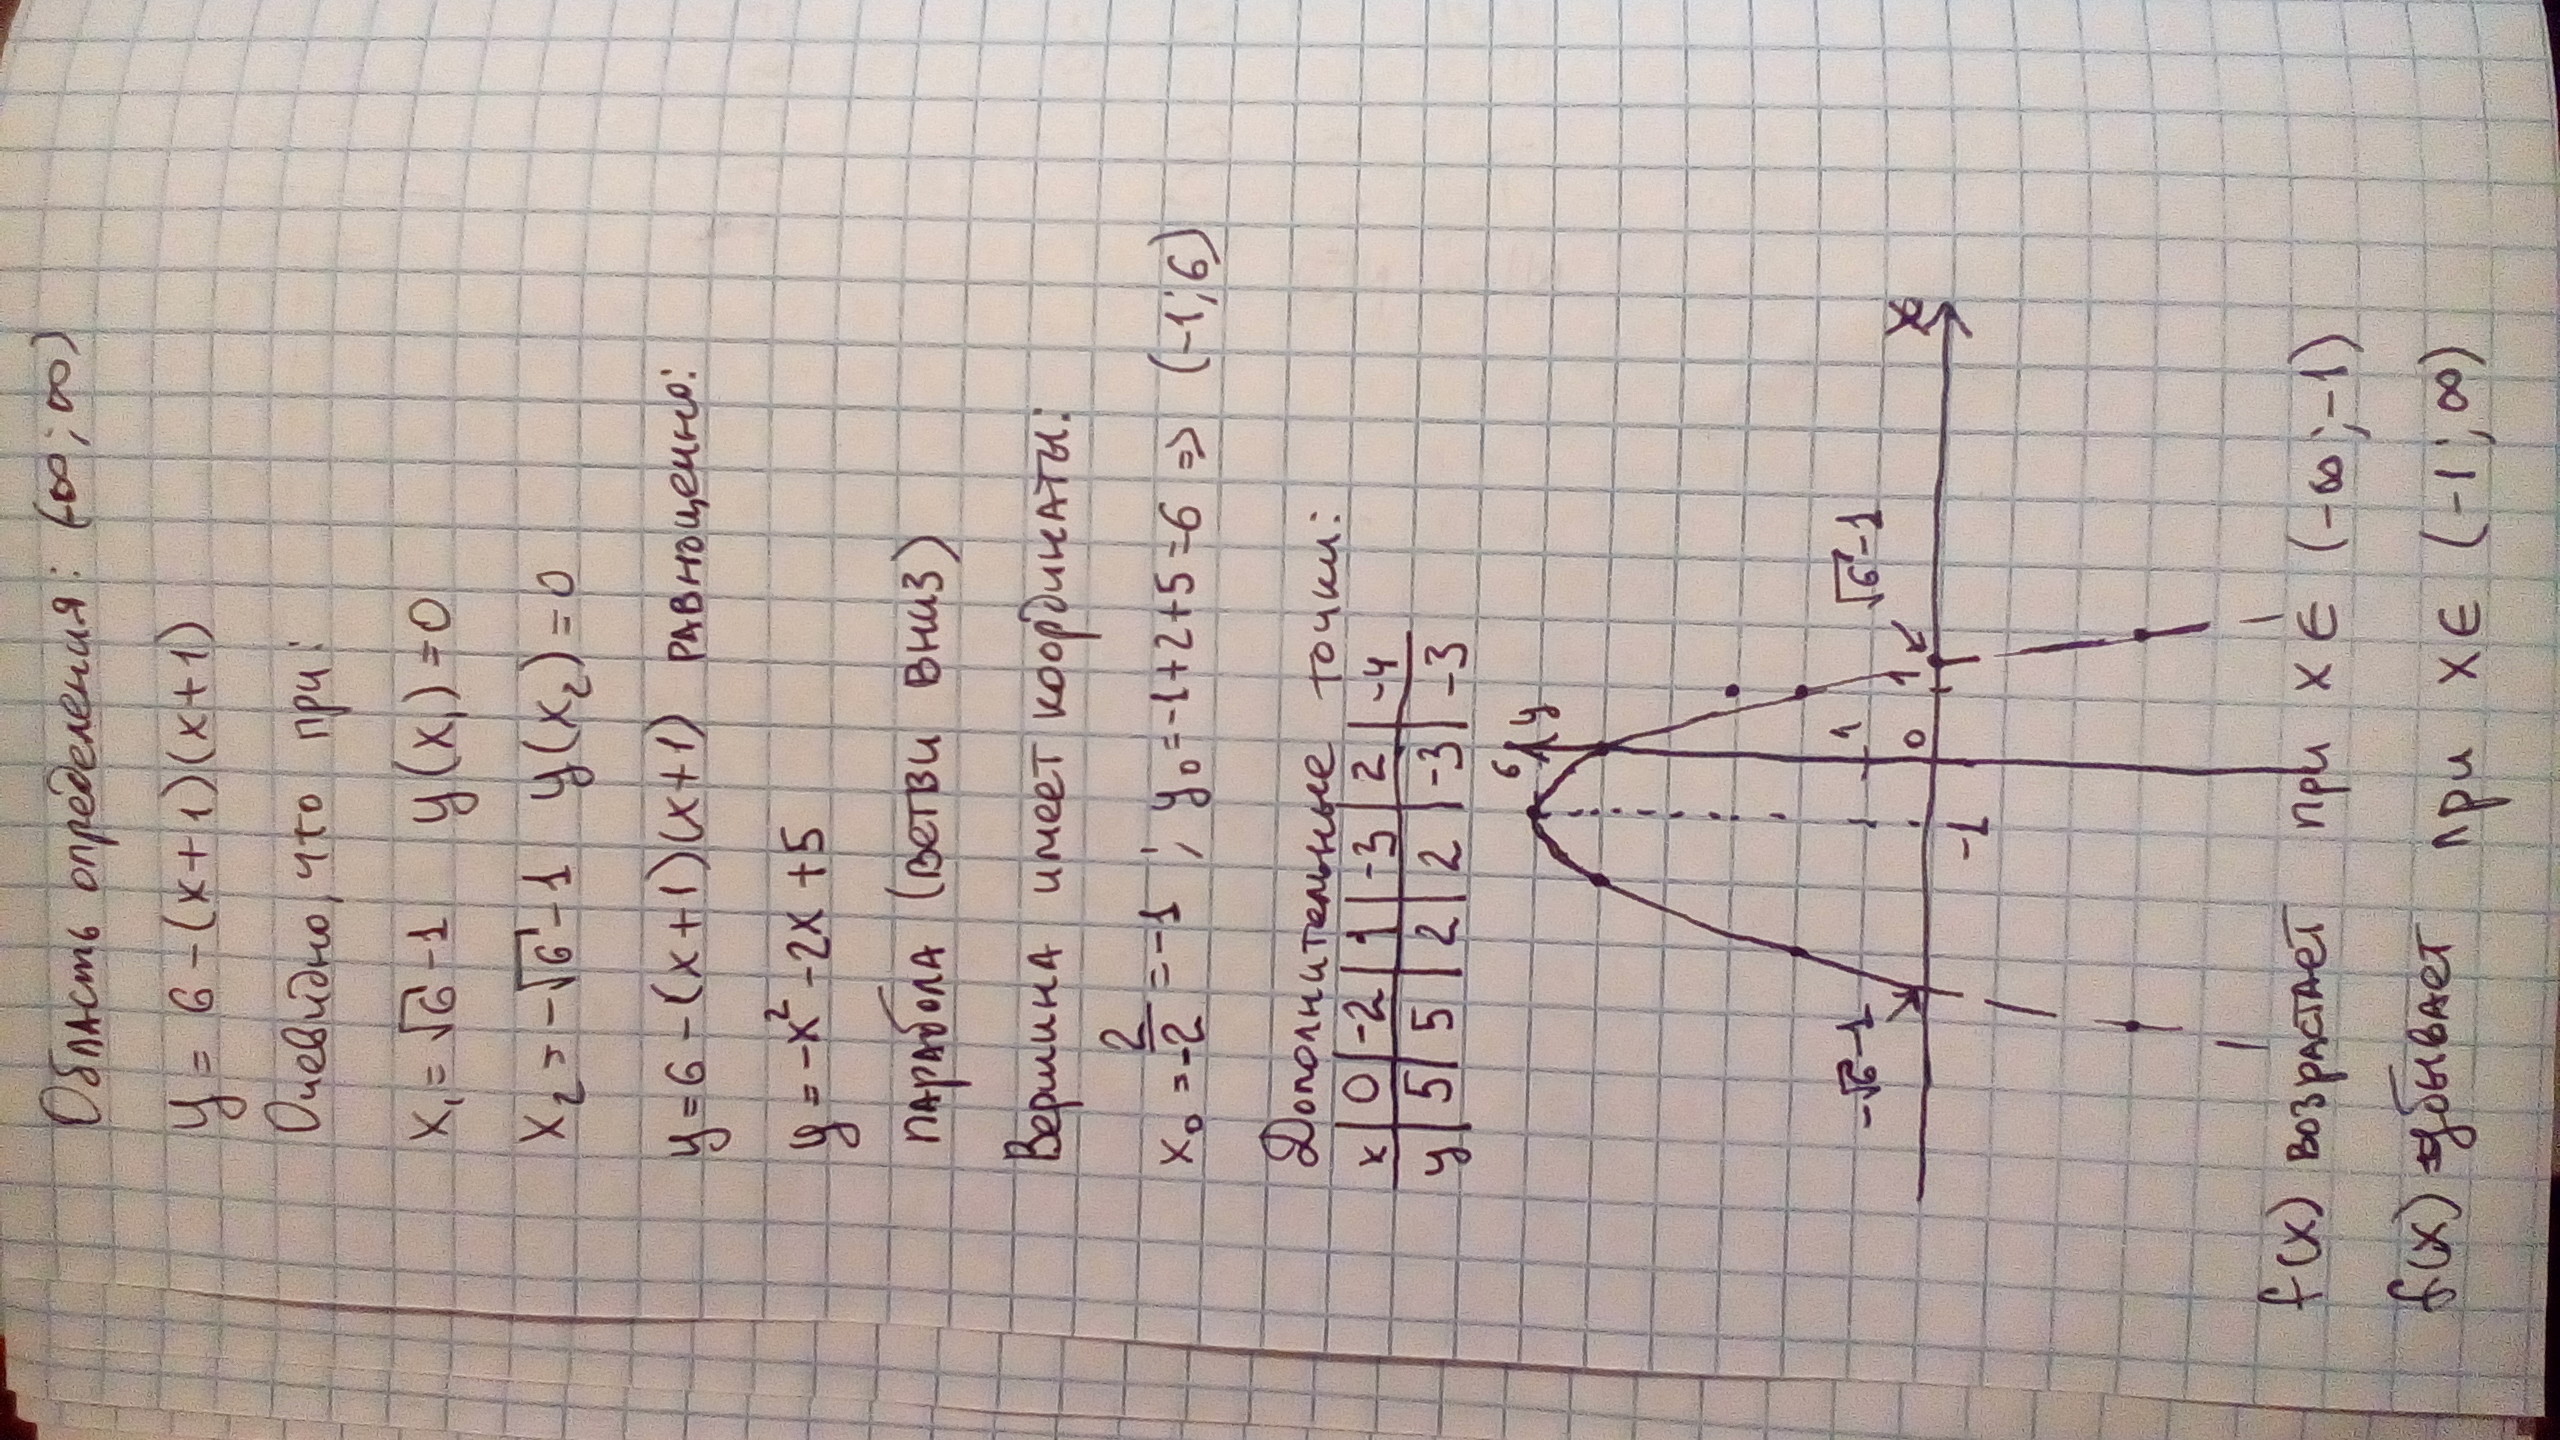 Область определения: (-∞; ∞)
y = 6 - (x+1)(x+1)
Очевидно, что при:
x₁ = √6 - 1 y(x₁) = 0
x₂ = -√6 - 1 y(x₂) = 0
y = 6 - (x+1)(x+1) равноценно:
y = -x² - 2x + 5
парабола (ветви вниз)
Вершина имеет координаты:
x₀ = 2/-2 = -1 ; y₀ = -1+2+5 = 6 => (-1; 6)
Дополнительные точки:
x | 0 | -2 | 1 | -3 | 2 | -4
y | 5 | 5 | 2 | 2 | -3 | -3
6 y
1
-√6-1 0 1 √6-1 x
-1
f(x) возрастает при x ∈ (-∞; -1)
f(x) убывает при x ∈ (-1; ∞)